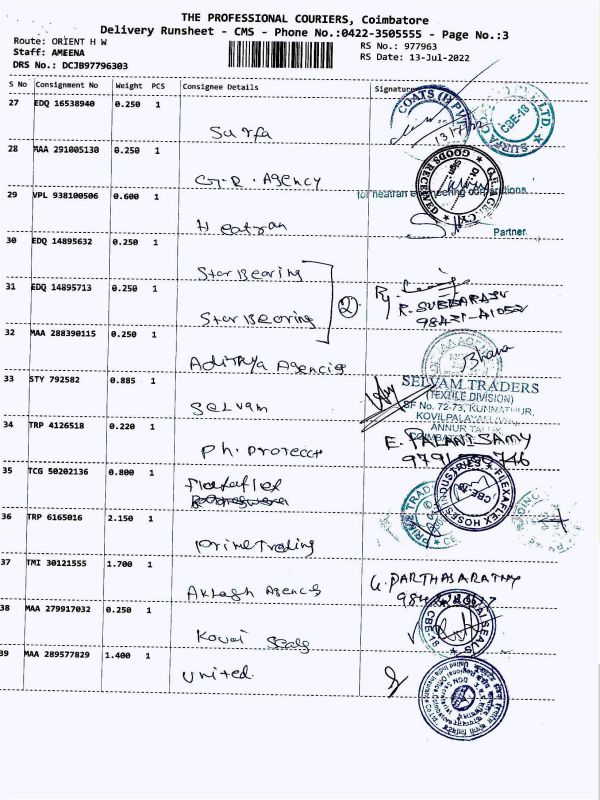 THE PROFESSIONAL COURIERS, Coimbatore
Delivery Runsheet - CMS - Phone No.:0422-3505555 - Page No.:3
Route: ORIENT H W
RS No.: 977963
Staff: AMEENA
RS Date: 13-Jul-2022
DRS No.: DCJB97796303
S No Consignment No Weight PCS Consignee Details Signature
27 EDQ 16538940 0.250 1
Surfa
COATS (I) P
13/7/22
CBE-18
28 MAA 291005130 0.250 1
G.R. Agency
GOODS RECEIVED
29 VPL 938100506 0.600 1
for heatran engineering operations
Heatran
Partner
30 EDQ 14895632 0.250 1
Star Bearing
31 EDQ 14895713 0.250 1
Star Bearing
2
R. SUBBARAJU
32 MAA 288390115 0.250 1
Adithya Agencies
Bhana
33 STY 792582 0.885 1
Selvam
SELVAM TRADERS
(TEXTILE DIVISION)
SF No. 72-73, KUNNATHUR,
34 TRP 4126518 0.220 1
Ph. Protecct
E. PALANISAMY
35 TCG 50202136 0.800 1
Flexaflex
FLEXAFLEX HOSES INDUSTRIES
36 TRP 6165016 2.150 1
prime Trading
PRIME TRAD
37 TMI 30121555 1.700 1
Akhash Agencies
G. PARTHASARATHY
38 MAA 279917032 0.250 1
Kovai Seals
KOVAI SEALS
CBE-18
39 MAA 289577829 1.400 1
United